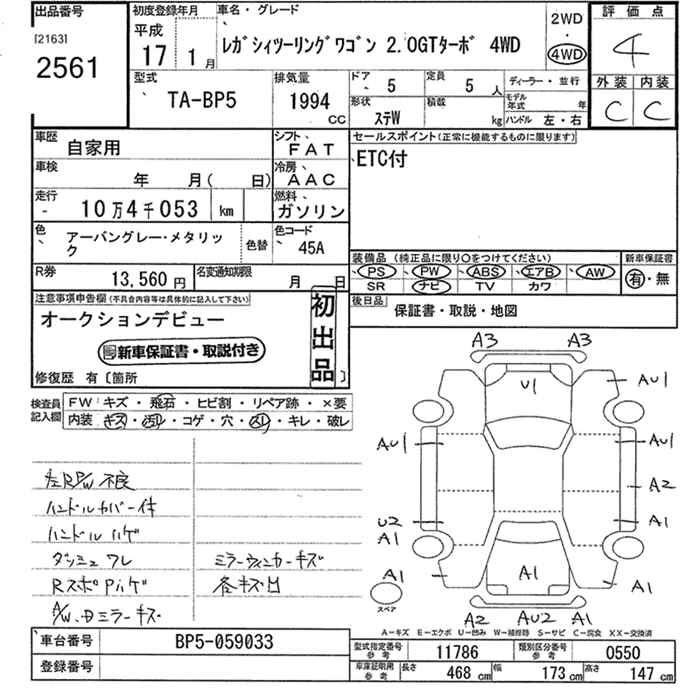 出品番号
[2163]
2561
初度登録年月
平成
17 1月
車名・グレード
レガシィツーリングワゴン 2.0GTターボ 4WD
2WD
・
4WD
評価点
4
外装 内装
C C
型式
TA-BP5
排気量
1994 CC
ドア 5
定員 5 人
形状 ステW
積載 kg
ディーラー・並行
モデル年式 年
ハンドル 左・右
車歴 自家用
シフト FAT
車検 年 月( 日)
冷房 AAC
走行 10万4千053 km
燃料 ガソリン
色 アーバングレー・メタリック
色替
色コード 45A
R券 13,560円
名変通知期限 月 日
セールスポイント(正常に機能するものに限ります)
ETC付
装備品(純正品に限り○をつけてください)
PS PW ABS エアB AW
SR ナビ TV カワ
新車保証書
有・無
後日品 保証書・取説・地図
注意事項申告欄(不具合内容等は具体的に記入して下さい)
オークションデビュー
新車保証書・取説付き
初出品
修復歴 有〔箇所 〕
検査員記入欄
FW キズ・飛石・ヒビ割・リペア跡・×要
内装 キズ・汚れ・コゲ・穴・スレ・キレ・破レ
左R P/W 不良
ハンドルカバー付
ハンドル ハゲ
ダッシュ ワレ
RスポPハゲ
A/W、ドミラーキズ
ミラーウィンカーキズ
各キズ凹
A3 A3
U1
AU1
AU1 AU1
A2
U2 A1
A1
A1 A1 A1
A2 AU2 A1
スペア
A-キズ E-エクボ U-凹み W-補修跡 S-サビ C-腐食 XX-交換済
車台番号 BP5-059033
登録番号
型式指定番号 参考 11786
類別区分番号 参考 0550
車庫証明用 参考 長さ 468 cm 幅 173 cm 高さ 147 cm